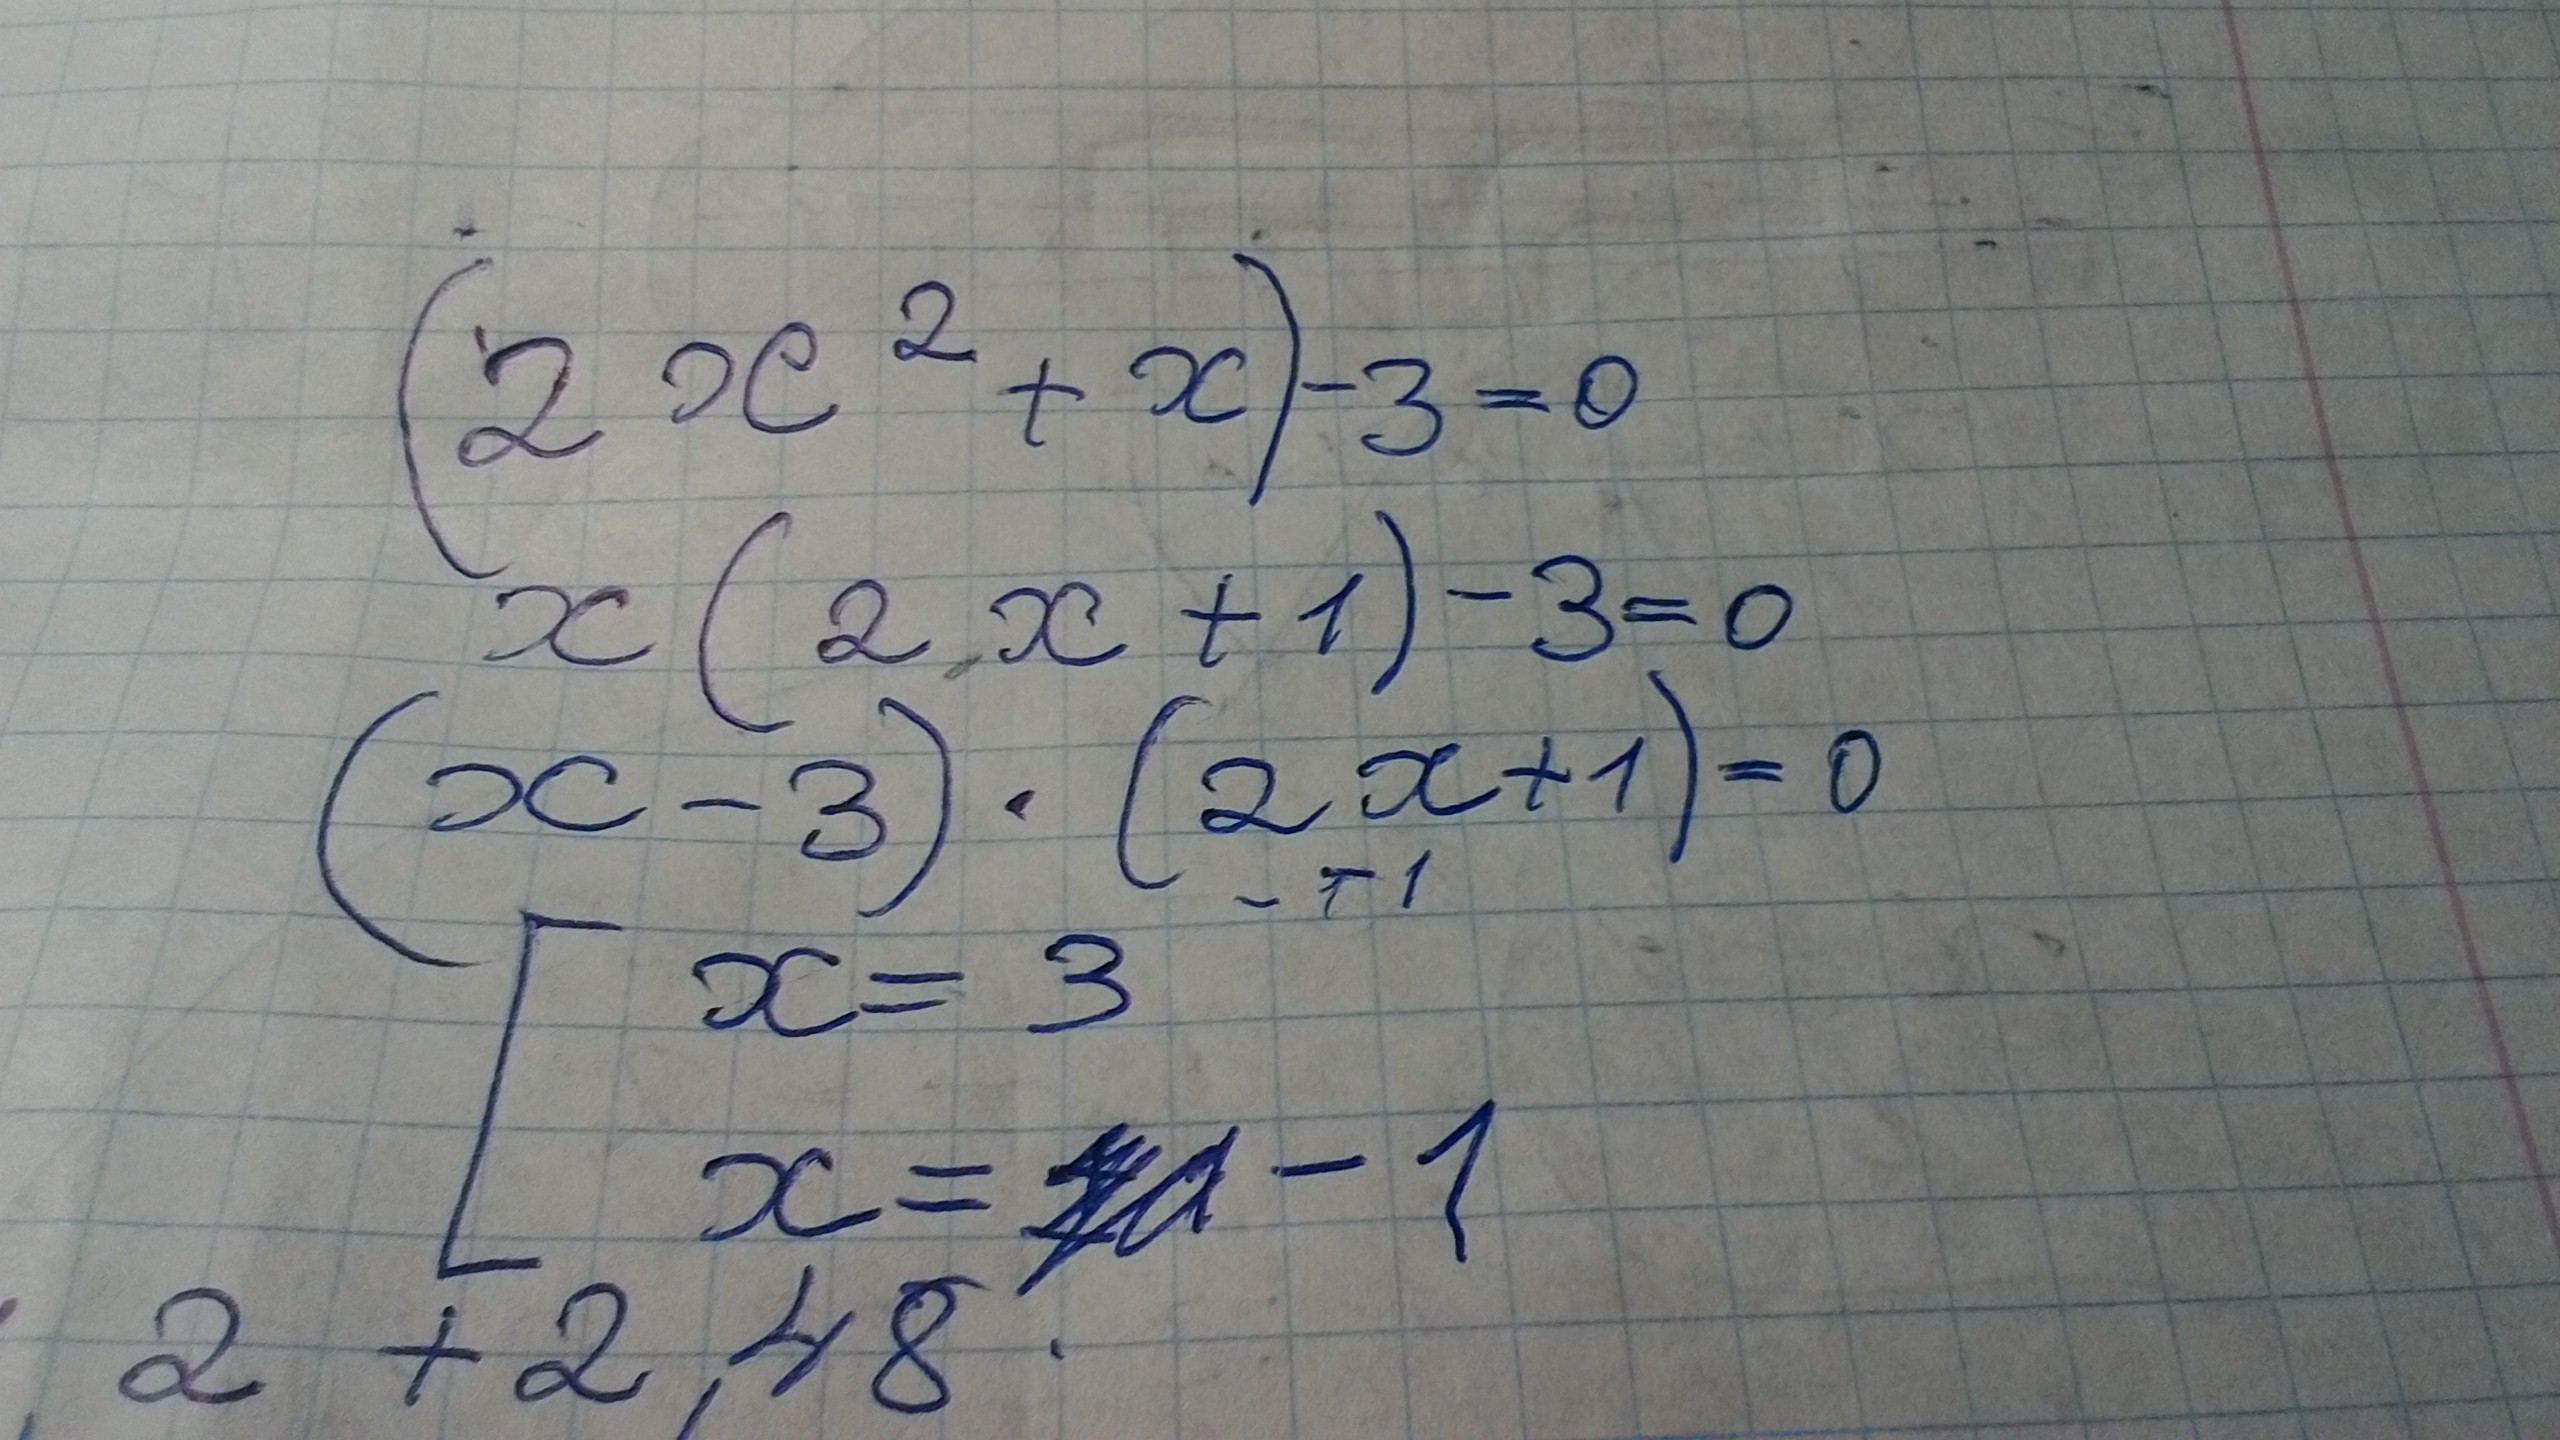 (2x² + x) - 3 = 0
x(2x + 1) - 3 = 0
(x - 3) · (2x + 1) = 0
- + 1
x = 3
x = - 1
2 + 2,48 ·